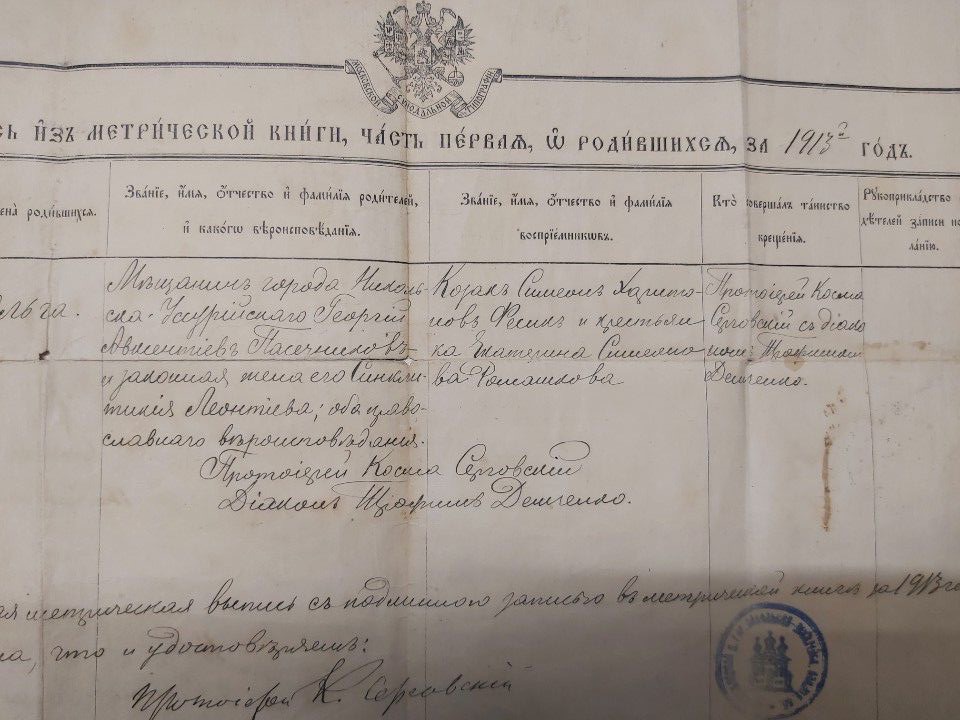 МОСКОВСКОЙ СИНОДАЛЬНОЙ ТИПОГРАФІИ
СЬ И҆ЗЪ МЕТРИ́ЧЕСКОЙ КНИ́ГИ, ЧА́СТЬ ПЕ́РВАЯ, Ѡ҆ РОДИ́ВШИХСЯ, ЗА 1913й ГО́ДЪ.
мена̀ роди́вшихся.
Зва́ніе, и҆́мя, ѻ҆́тчество и҆ фами́лія роди́телей,
и҆ како́гѡ вѣроисповѣ́данія.
Зва́ніе, и҆́мя, ѻ҆́тчество и҆ фами́лія
воспріе́мникѡвъ.
Кто̀ соверша́лъ та́инство
креще́нія.
Рꙋкоприкла́дство
дѣ́телей за́писи по
ла́нію.
льга.
Мѣщанинъ города Николь-
ска-Уссурійскаго Георгій
Авксентіевъ Пасечниковъ
и законная жена его Синкли-
тикія Леонтіева; оба право-
славнаго вѣроисповѣданія.
Козакъ Симеонъ Харито-
новъ Фесикъ и крестьян-
ка Екатерина Симеоно-
ва Ромашкова
Протоіерей Косма
Серговскій съ діако
номъ
Демченко.
Протоіерей Косма Серговскій
Діаконъ Демченко.
ая метрическая выпись съ подлинною записью въ метрической книгѣ за 1913 го
на, что и удостовѣряемъ:
Протоіерей К. Серговскій